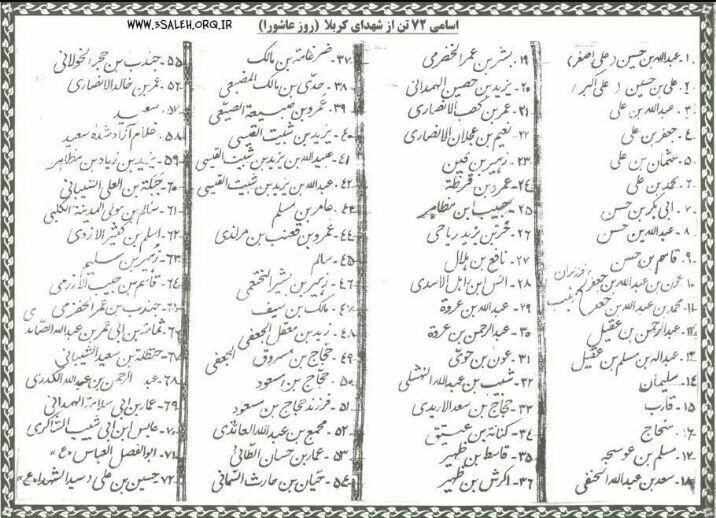 WWW.3SALEH.ORQ.IR
اسامی ۷۲ تن از شهدای کربلا (روز عاشورا)
۱. عبدالله بن حسین (علی اصغر)
۲. علی بن حسین (علی اکبر)
۳. عبدالله بن علی
۴. جعفر بن علی
۵. عثمان بن علی
۶. محمد بن علی
۷. ابی بکر بن حسن
۸. عبدالله بن حسن
۹. قاسم بن حسن
۱۰. عون بن عبدالله بن جعفر
۱۱. محمد بن عبدالله بن جعفر
فرزندان زینب
۱۲. عبدالرحمن بن عقیل
۱۳. عبداله بن مسلم بن عقیل
۱۴. سلیمان
۱۵. قارب
۱۶. منحاج
۱۷. مسلم بن عوسجه
۱۸. سعد بن عبدالله الحنفی
۱۹. بشر بن عمر الخضرمی
۲۰. یزید بن حصین الهمدانی
۲۱. عمر بن کعب الانصاری
۲۲. نعیم بن عجلان الانصاری
۲۳. زهیر بن قین
۲۴. عمرو بن قرظة
۲۵. حبیب ابن مظاهر
۲۶. حر بن یزید ریاحی
۲۷. نافع بن هلال
۲۸. انس ابن کاهل الاسدی
۲۹. عبدالله بن عروة
۳۰. عبدالرحمن بن عروة
۳۱. عون بن حوی
۳۲. شبیب بن عبدالله النهشلی
۳۳. حجاج بن سعد الاریدی
۳۴. کنانة بن عتیق
۳۵. قاسط بن ظهیر
۳۶. اکرش بن ظهیر
۳۷. ضرغامة بن مالک
۳۸. حدی بن مالک الضبعی
۳۹. عمرو بن ضبیعة الضیعی
۴۰. یزید بن ثبیت القیسی
۴۱. عبیدالله بن یزید بن ثبیت القیسی
۴۲. عبدالله بن یزید بن ثبیت القیسی
۴۳. عامر بن مسلم
۴۴. عمرو بن قعنب بن مرلدی
۴۵. سالم
۴۶. زهیر بن بشر الخثعمی
۴۷. مالک بن سیف
۴۸. زید بن معقل الجعفی
۴۹. حجاج بن مسروق الجعفی
۵۰. حجاج بن مسعود
۵۱. فرزند حجاج بن مسعود
۵۲. مجمع بن عبدالله العائذی
۵۳. عمار بن حسان الطائی
۵۴. حیان بن حارث السمانی
۵۵. جندب بن حجر الخولانی
۵۶. عمر بن خالد الانصاری
۵۷. سعید
۵۸. غلام آزاد شده سعید
۵۹. یزید بن زیاد بن مظاهر
۶۰. جبلة بن العلی الشیبانی
۶۱. سالم بن مولی المدینة الکلبی
۶۲. اسلم بن کثیر الازدی
۶۳. زهیر بن سلیم
۶۴. قاسم بن حبیب الازرمی
۶۵. جندب بن عمر الحفری
۶۶. ثمامة بن ابی عمر بن عبدالله الصائد
۶۷. حنظلة بن سعید الشیبانی
۶۸. عبد الرحمن بن عبدالله الکدری
۶۹. عمار بن ابی سلامة الهمدانی
۷۰. عابس ابن ابی شبیب الشاکری
۷۱. ابوالفضل العباس «ع»
۷۲. حسین بن علی (سید الشهدا «ع»